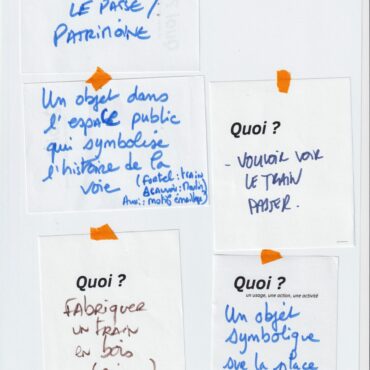 LE PASSE /
PATRIMOINE
Un objet dans
l'espace public
qui symbolise
l'histoire de la
voie
train
Quoi ?
- VOUVOIR VOIR
LE TRAIN
PASSER.
Quoi ?
FABRIQUER
UN TRAIN
EN BOIS
Quoi ?
un usage, une action, une activité
Un objet
symbolique
sur la place